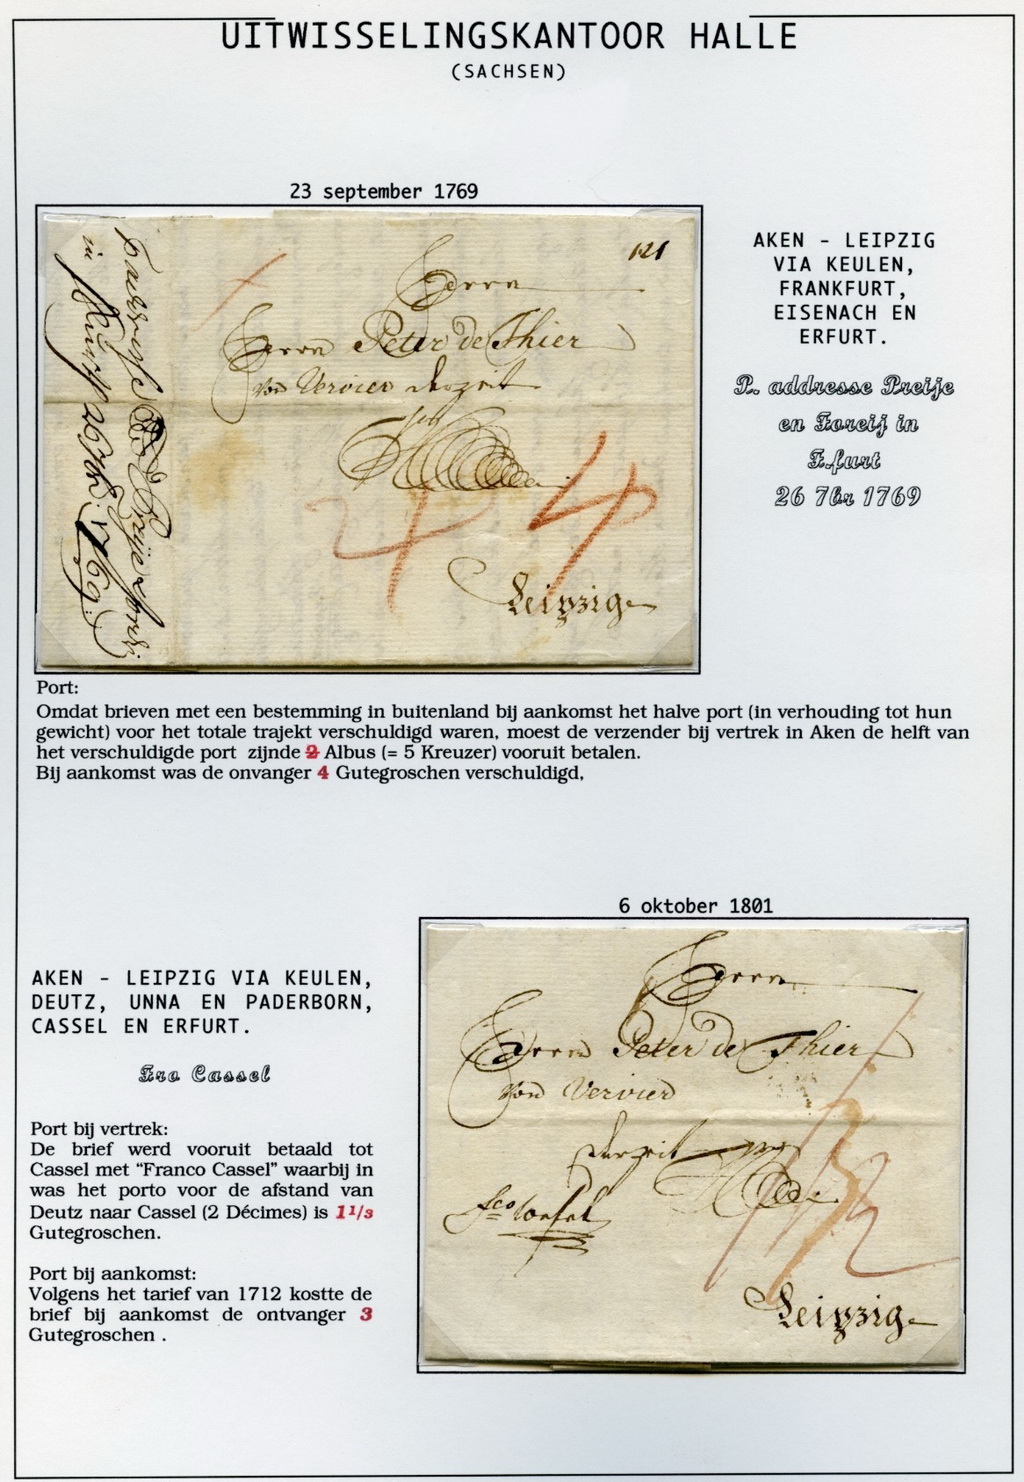 UITWISSELINGSKANTOOR HALLE
(SACHSEN)
23 september 1769
121
Herrn
Herrn Peter de Thier
von Vervier derzeit
Leipzig
4
AKEN - LEIPZIG
VIA KEULEN,
FRANKFURT,
EISENACH EN
ERFURT.
P. addresse Preije
en Foreij in
F.furt
26 7br 1769
Port:
Omdat brieven met een bestemming in buitenland bij aankomst het halve port (in verhouding tot hun
gewicht) voor het totale trajekt verschuldigd waren, moest de verzender bij vertrek in Aken de helft van
het verschuldigde port zijnde 2 Albus (= 5 Kreuzer) vooruit betalen.
Bij aankomst was de onvanger 4 Gutegroschen verschuldigd,
6 oktober 1801
AKEN - LEIPZIG VIA KEULEN,
DEUTZ, UNNA EN PADERBORN,
CASSEL EN ERFURT.
Fro Cassel
Port bij vertrek:
De brief werd vooruit betaald tot
Cassel met “Franco Cassel” waarbij in
was het porto voor de afstand van
Deutz naar Cassel (2 Décimes) is 1 1/3
Gutegroschen.
Port bij aankomst:
Volgens het tarief van 1712 kostte de
brief bij aankomst de ontvanger 3
Gutegroschen .
Herrn
Herrn Peter de Thier
von Vervier
derzeit
fco Cassel
Leipzig